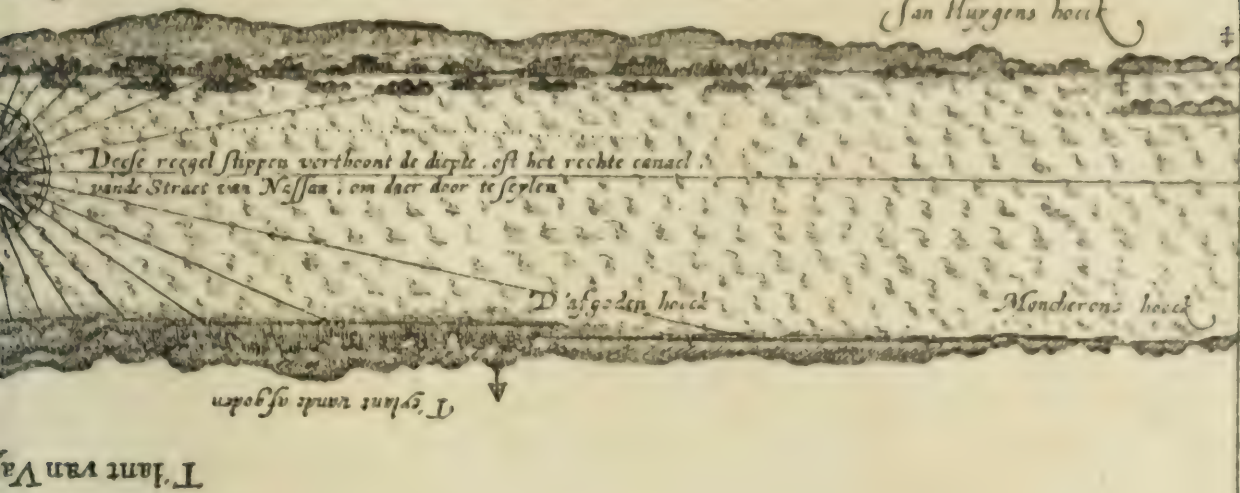 Jan Huygens hoeck
Deese reegel stippen verthoont de diepte, oft het rechte canael,
vande Straet van Nassau, om daer door te seylen
D'afgoden hoeck
Moucherons hoeck
T'eylant vande afgoden
T'lant van Va